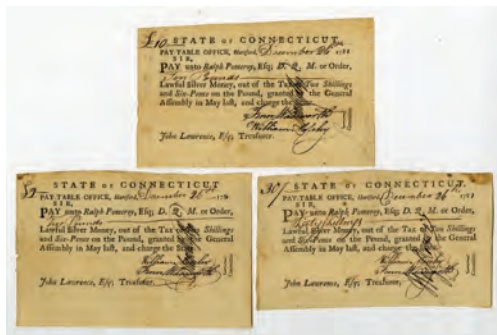 £10 STATE OF CONNECTICUT.
PAY-TABLE OFFICE, Hartford, December 26th 1781
SIR,
PAY unto Ralph Pomeroy, Esq; D. Q. M. or Order,
Ten Pounds
Lawful Silver Money, out of the Tax of Two Shillings
and Six-Pence on the Pound, granted by the General
Assembly in May last, and charge the State.
William Moseley
John Lawrence, Esq; Treasurer.
STATE OF CONNECTICUT
PAY-TABLE OFFICE, Hartford, December 26th 178
SIR,
PAY unto Ralph Pomeroy, Esq; D. Q. M. or Order,
Pounds
Lawful Silver Money, out of the Tax of Two Shillings
and Six-Pence on the Pound, granted by the General
Assembly in May last, and charge the State
John Lawrence, Esq; Treasurer.
30/ STATE OF CONNECTICUT
PAY-TABLE OFFICE, Hartford, December 26th 1781
SIR,
PAY unto Ralph Pomeroy, Esq; D. Q. M. or Order,
Lawful Silver Money, out of the Tax of Two Shillings
and Six-Pence on the Pound, granted by the General
Assembly in May last, and charge the State
John Lawrence, Esq; Treasurer.